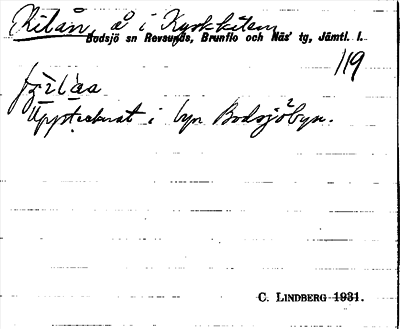 Kilån, å i Kyrkbäcken
Bodsjö sn Revsunds, Brunflo och Näs' tg, Jämtl. l.
119
Upptecknat i byn Bodsjöbyn.
C. LINDBERG 1931.